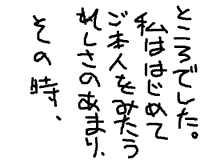 ところでした。
私ははじめて
ご本人をみたう
れしさのあまり、
その時、